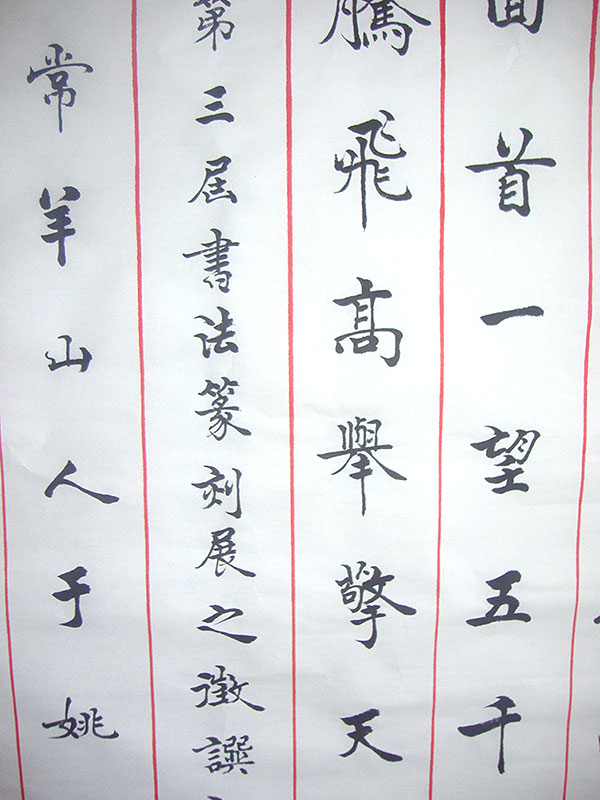 面首一望五千
騰飛高舉擎天
第三屆書法篆刻展之徵譔
常羊山人于姚